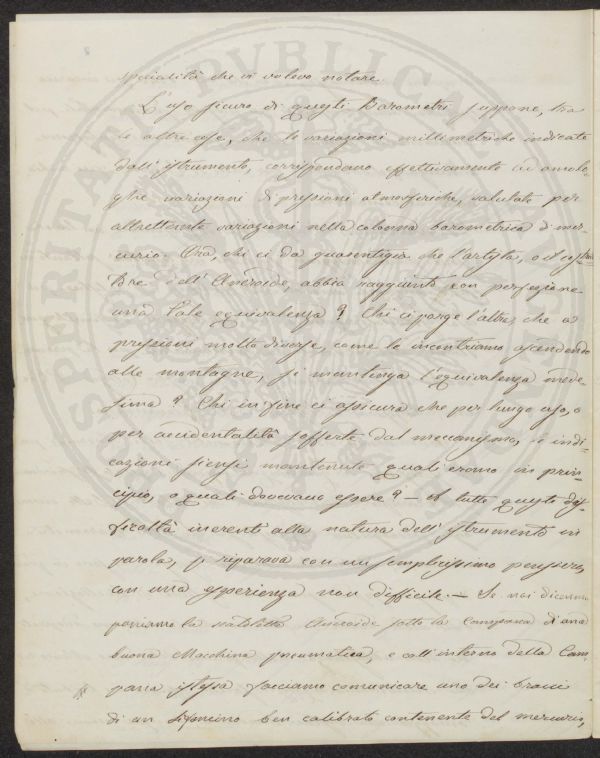 specialità che vi volevo notare.
L'uso sicuro di questi Barometri suppone, tra
le altre cose, che le variazioni millimetriche indicate
dall'istrumento, corrispondano effettivamente ad analo-
ghe variazioni di pressioni atmosferiche, valutate per
altrettante variazioni nella colonna barometrica di mer-
curio. Ora, chi ci dà guarentigia che l'artista, o il costrut-
tore dell'Aneroide, abbia raggiunto con perfezione
una tale equivalenza? Chi ci porge l'altra, che a
pressioni molto diverse, come le incontriamo ascendendo
alle montagne, si mantenga l'equivalenza mede-
sima? Chi in fine ci assicura che per lungo uso, o
per accidentalità sofferte dal meccanismo, le indi-
cazioni siensi mantenute quali erano in prin-
cipio, o quali dovevano essere? — A tutte queste dif-
ficoltà inerenti alla natura dell'istrumento in
parola, si riparava con un semplicissimo pensiero,
con una esperienza non difficile. — Se noi dicemmo
poniamo la scatoletta Aneroide sotto la campana di una
buona Macchina pneumatica, e coll'interno della Cam-
pana istessa facciamo comunicare uno dei bracci
di un Sifoncino ben calibrato contenente del mercurio,
PROSPERITATI PVBLICAE